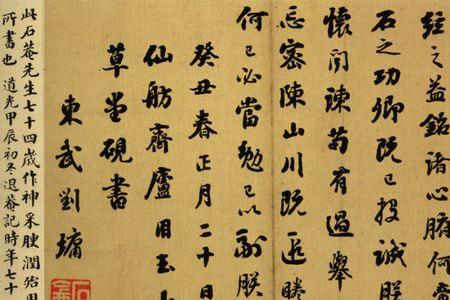 經之益銘諸心腑何啻
石之功卿既已投誠朕
懷聞諫苟有過舉
忘容陳山川既
何已必當勉已以副朕
癸丑春正月二十日
仙舫齋廬用玉
草堂硯書
東武劉墉
此石菴先生七十四歲作神采腴潤殆用
所書也 道光甲辰初冬退菴記時年七十